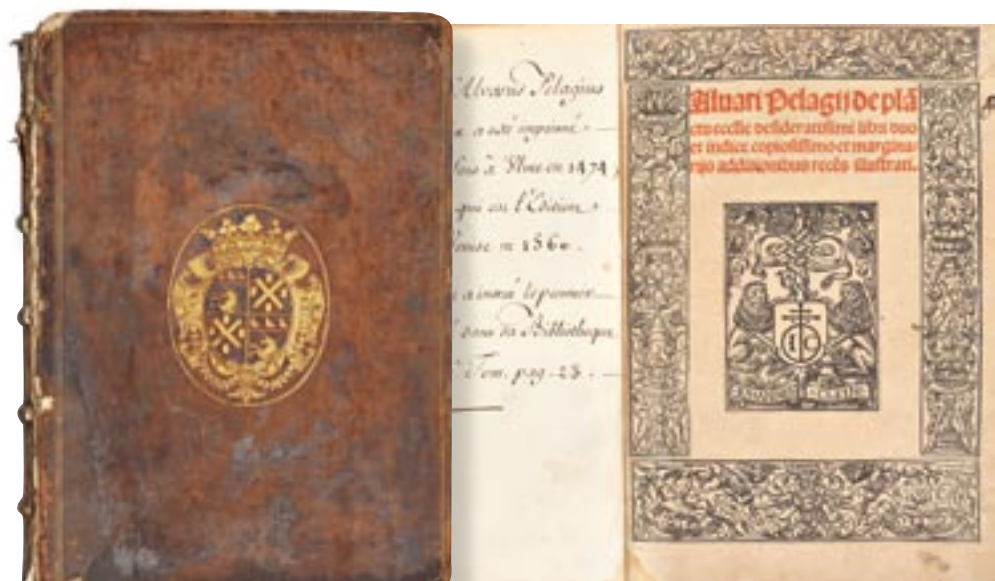 Alvarus Pelagius
a esté imprimé
fois à Ulme en 1474,
l'Edition
en 1560.
a inseré le premier
dans sa Bibliotheque
Tom. pag. 23.
Aluari Pelagij de plã
ctu ecclie desideratissimi libri duo
et indice copiosissimo et margina
rijs additionibus recẽs illustrati.
I C